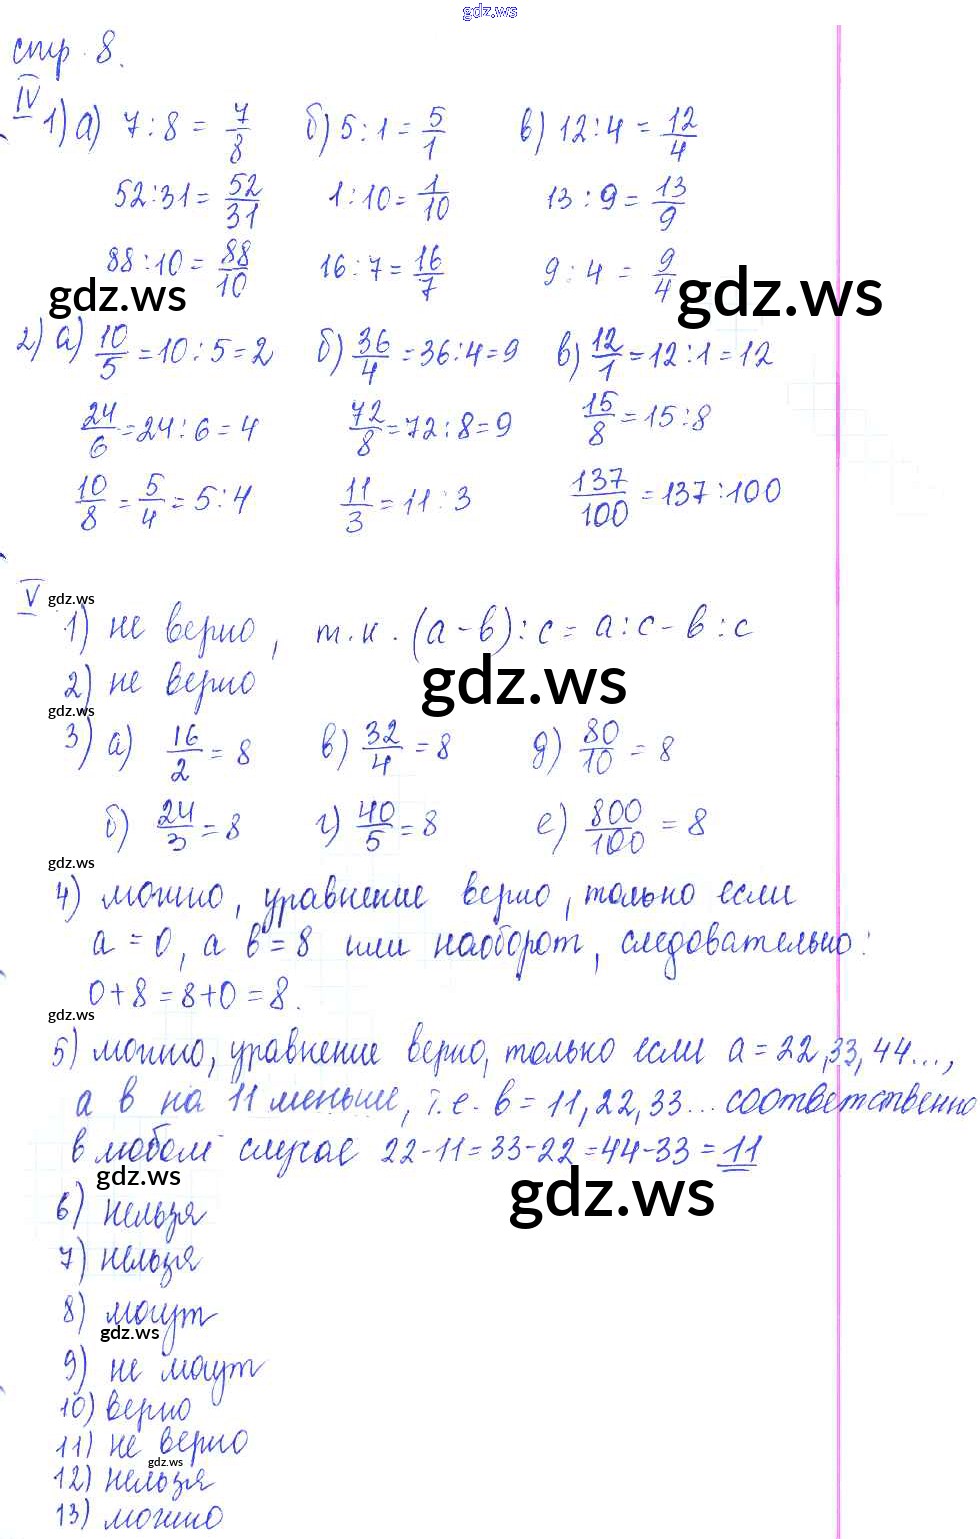 gdz.ws
стр. 8.
IV
1) а) 7 : 8 = 7/8 б) 5 : 1 = 5/1 в) 12 : 4 = 12/4
52 : 31 = 52/31 1 : 10 = 1/10 13 : 9 = 13/9
88 : 10 = 88/10 16 : 7 = 16/7 9 : 4 = 9/4
gdz.ws gdz.ws
2) а) 10/5 = 10 : 5 = 2 б) 36/4 = 36 : 4 = 9 в) 12/1 = 12 : 1 = 12
24/6 = 24 : 6 = 4 72/8 = 72 : 8 = 9 15/8 = 15 : 8
10/8 = 5/4 = 5 : 4 11/3 = 11 : 3 137/100 = 137 : 100
V gdz.ws
1) не верно, т.к. (а - в) : с = а : с - в : с
gdz.ws
2) не верно
gdz.ws
3) а) 16/2 = 8 в) 32/4 = 8 д) 80/10 = 8
б) 24/3 = 8 г) 40/5 = 8 е) 800/100 = 8
gdz.ws
4) можно, уравнение верно, только если
а = 0, а в = 8 или наоборот, следовательно:
0 + 8 = 8 + 0 = 8.
gdz.ws
5) можно, уравнение верно, только если а = 22, 33, 44...,
а в на 11 меньше, т.е. в = 11, 22, 33... соответственно
в любом случае 22 - 11 = 33 - 22 = 44 - 33 = 11
gdz.ws gdz.ws
6) нельзя
7) нельзя
8) могут
gdz.ws
9) не могут
10) верно
11) не верно
gdz.ws
12) нельзя
13) можно